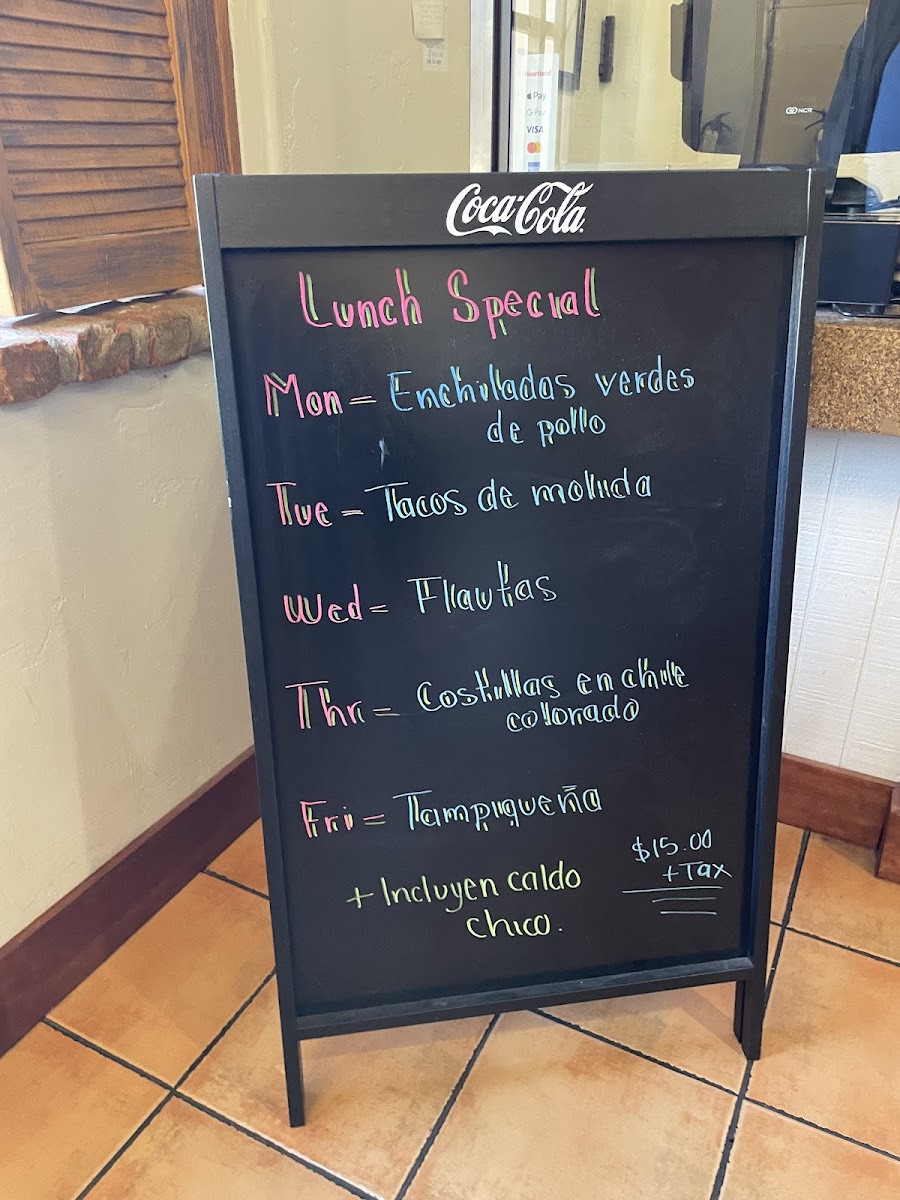 Heartland
Pay
G Pay
VISA
NCR
Coca-Cola
Lunch Special
Mon = Enchiladas verdes
de pollo
Tue = Tacos de molida
Wed = Flautas
Thr = Costillas en chile
colorado
Fri = Tampiqueña
$15.00
+ Tax
+ Incluyen caldo
chico.